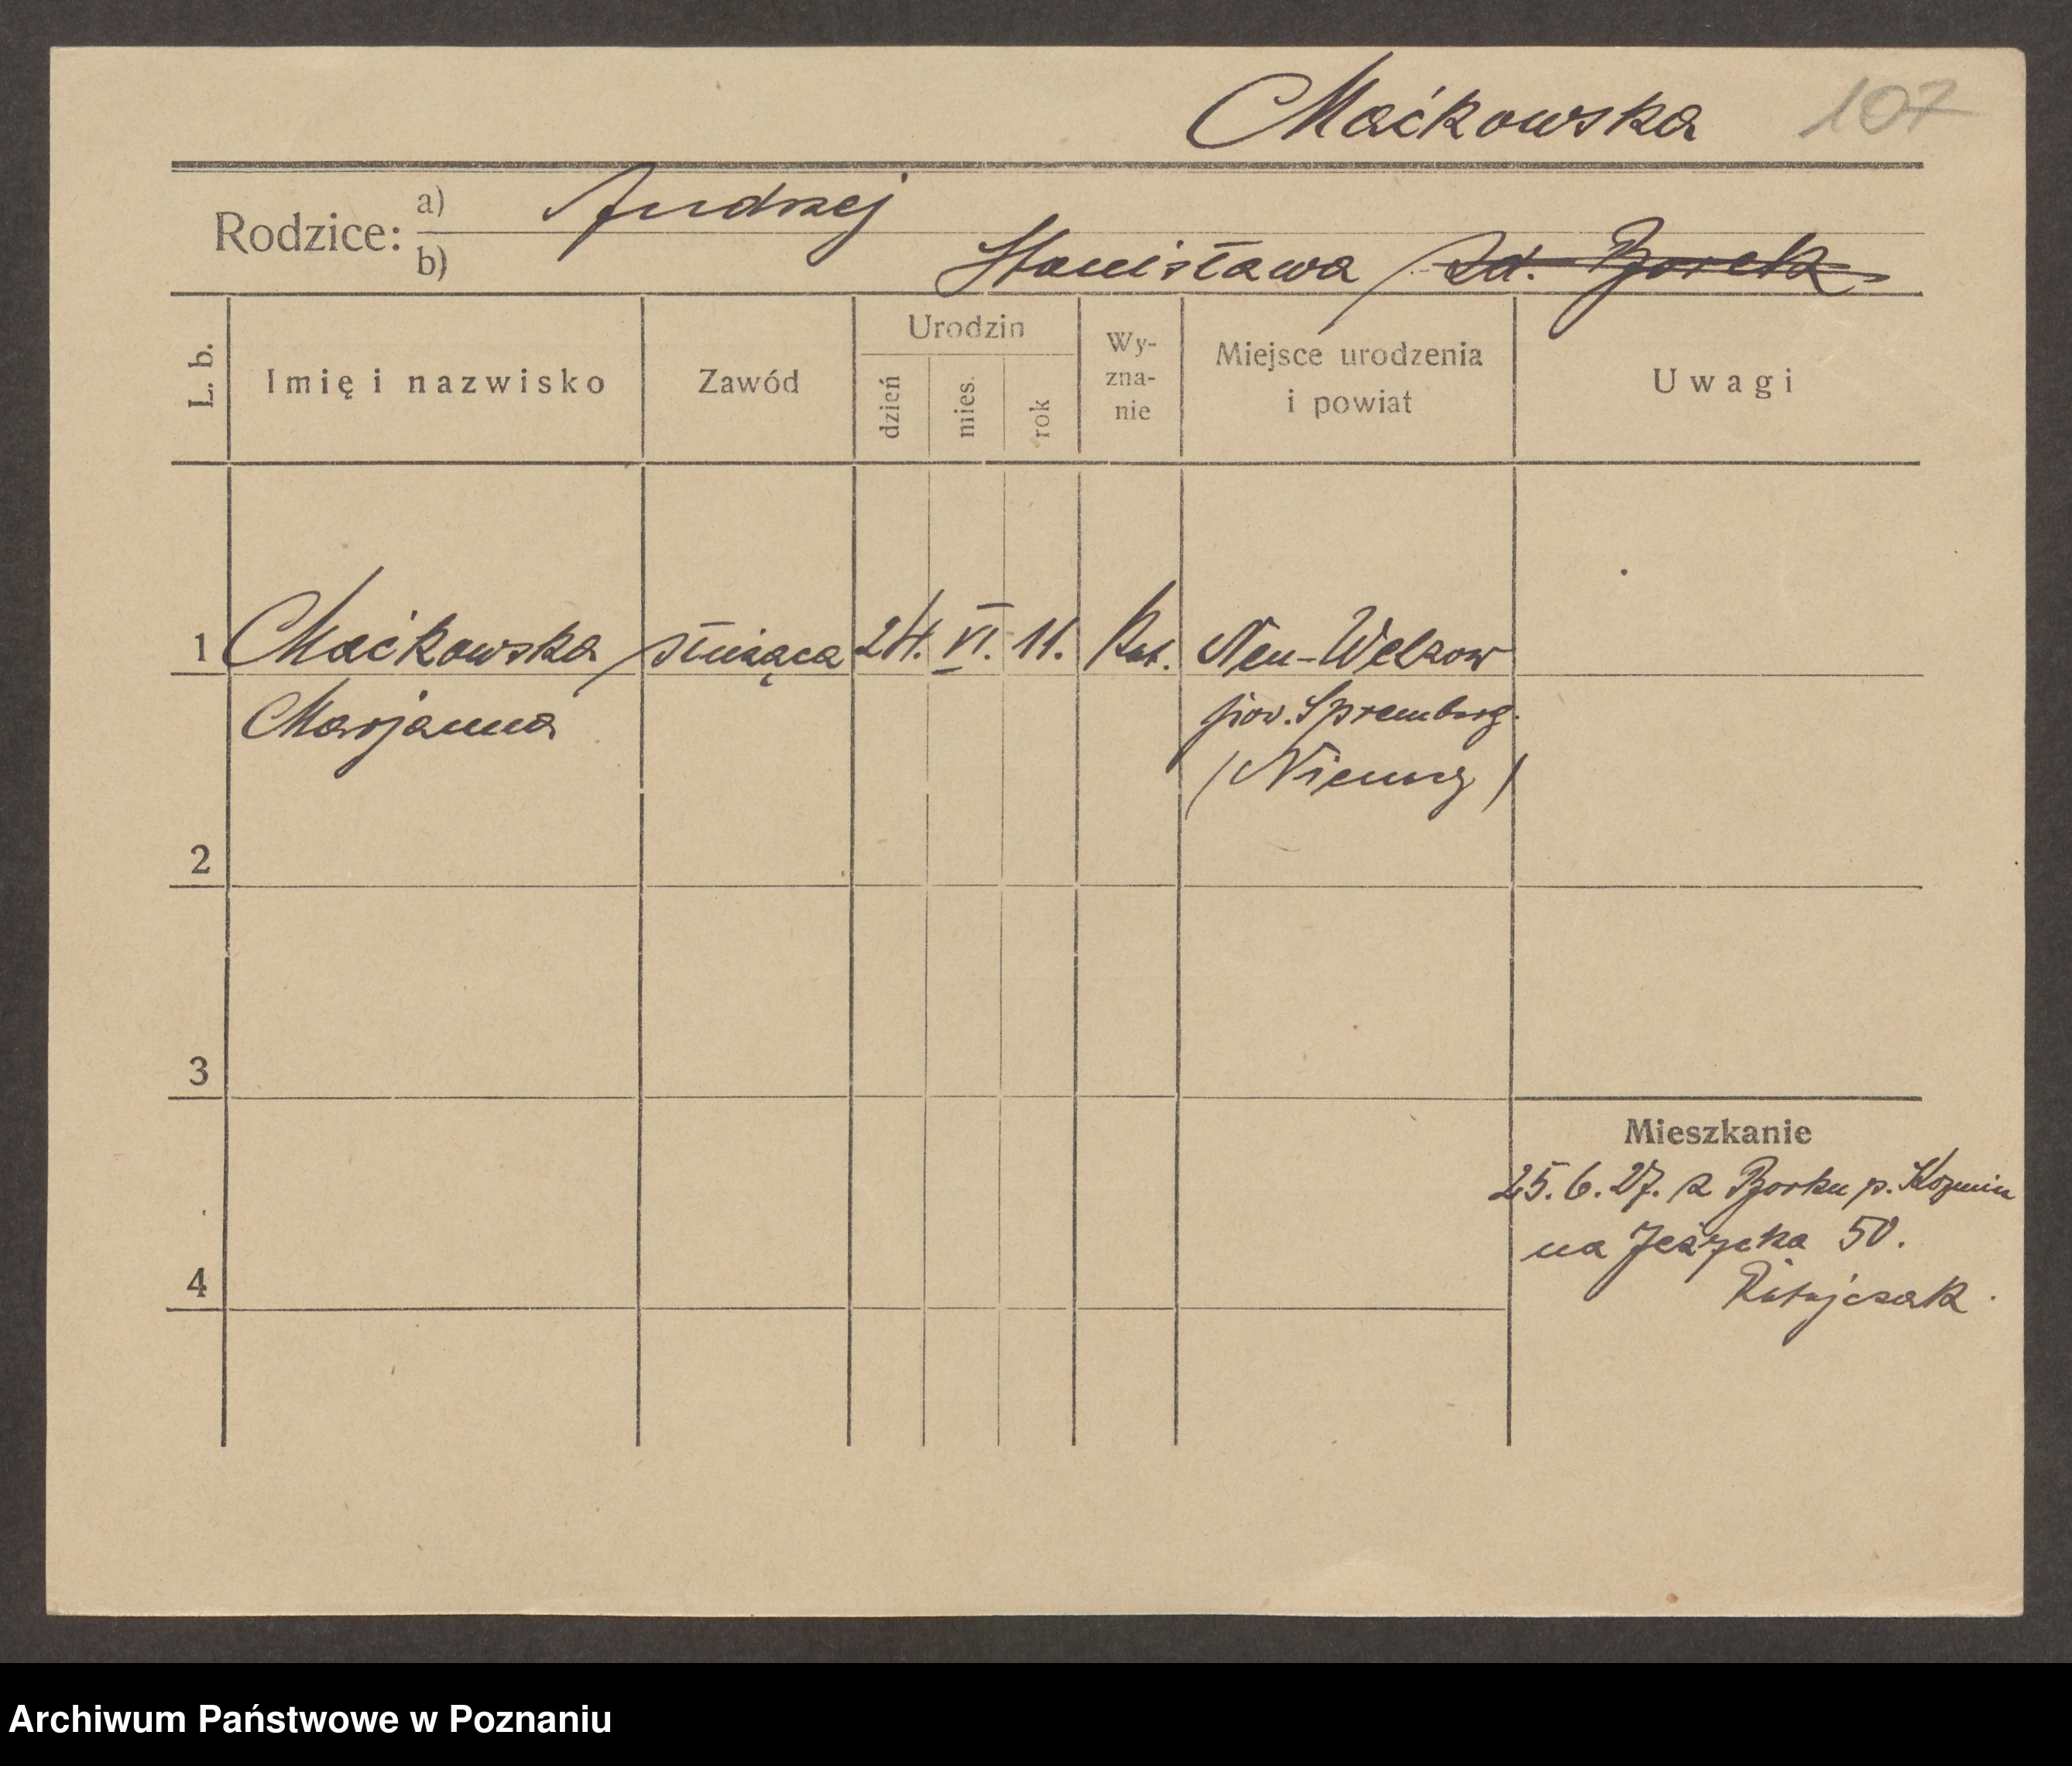 Maćkowska 107
Rodzice: a) Andrzej
b) Stanisława zd. Borek
L. b.
Imię i nazwisko
Zawód
Urodzin
dzień
mies.
rok
Wy-
zna-
nie
Miejsce urodzenia
i powiat
Uwagi
1 Maćkowska służąca 24. VI. 11. Kat. Neu-Welzow
Marjanna pow. Spremberg.
(Niemcy)
2
3
4
Mieszkanie
25.6.27. z Borku p. Kozmin
na Jeżycka 50.
Ratajczak.
Archiwum Państwowe w Poznaniu